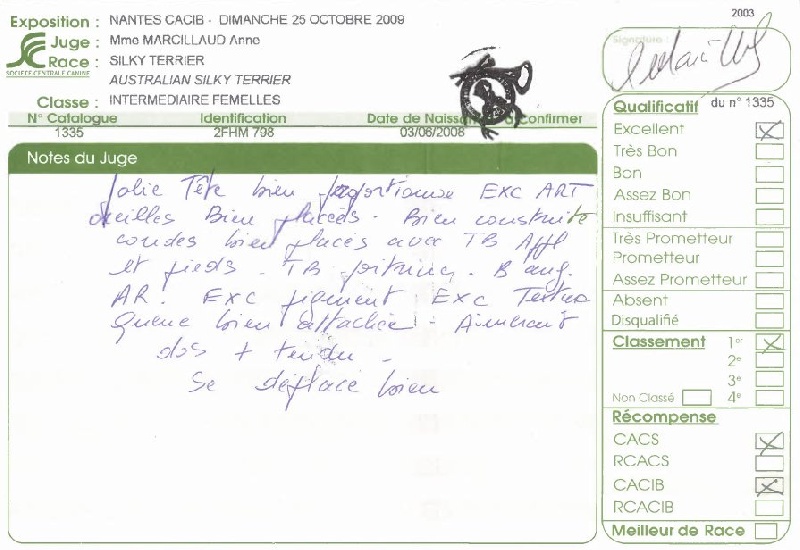 2003
Exposition : NANTES CACIB - DIMANCHE 25 OCTOBRE 2009
Juge : Mme MARCILLAUD Anne
Race : SILKY TERRIER
AUSTRALIAN SILKY TERRIER
SOCIETE CENTRALE CANINE
Classe : INTERMEDIAIRE FEMELLES
N° Catalogue Identification Date de Naissance confirmer
1335 2FHM 798 03/06/2008
Notes du Juge
Jolie Tête bien proportionnée EXC ART
oreilles Bien placées - Bien construite
coudes bien placés avec TB
et pieds - TB poitrine - B ang.
AR. EXC pigment EXC Texture
Queue bien attachée - Aimerait
dos + tendu -
Se déplace bien
Signature :
Qualificatif du n° 1335
Excellent
Très Bon
Bon
Assez Bon
Insuffisant
Très Prometteur
Prometteur
Assez Prometteur
Absent
Disqualifié
Classement 1er
2e
3e
Non Classé 4e
Récompense
CACS
RCACS
CACIB
RCACIB
Meilleur de Race